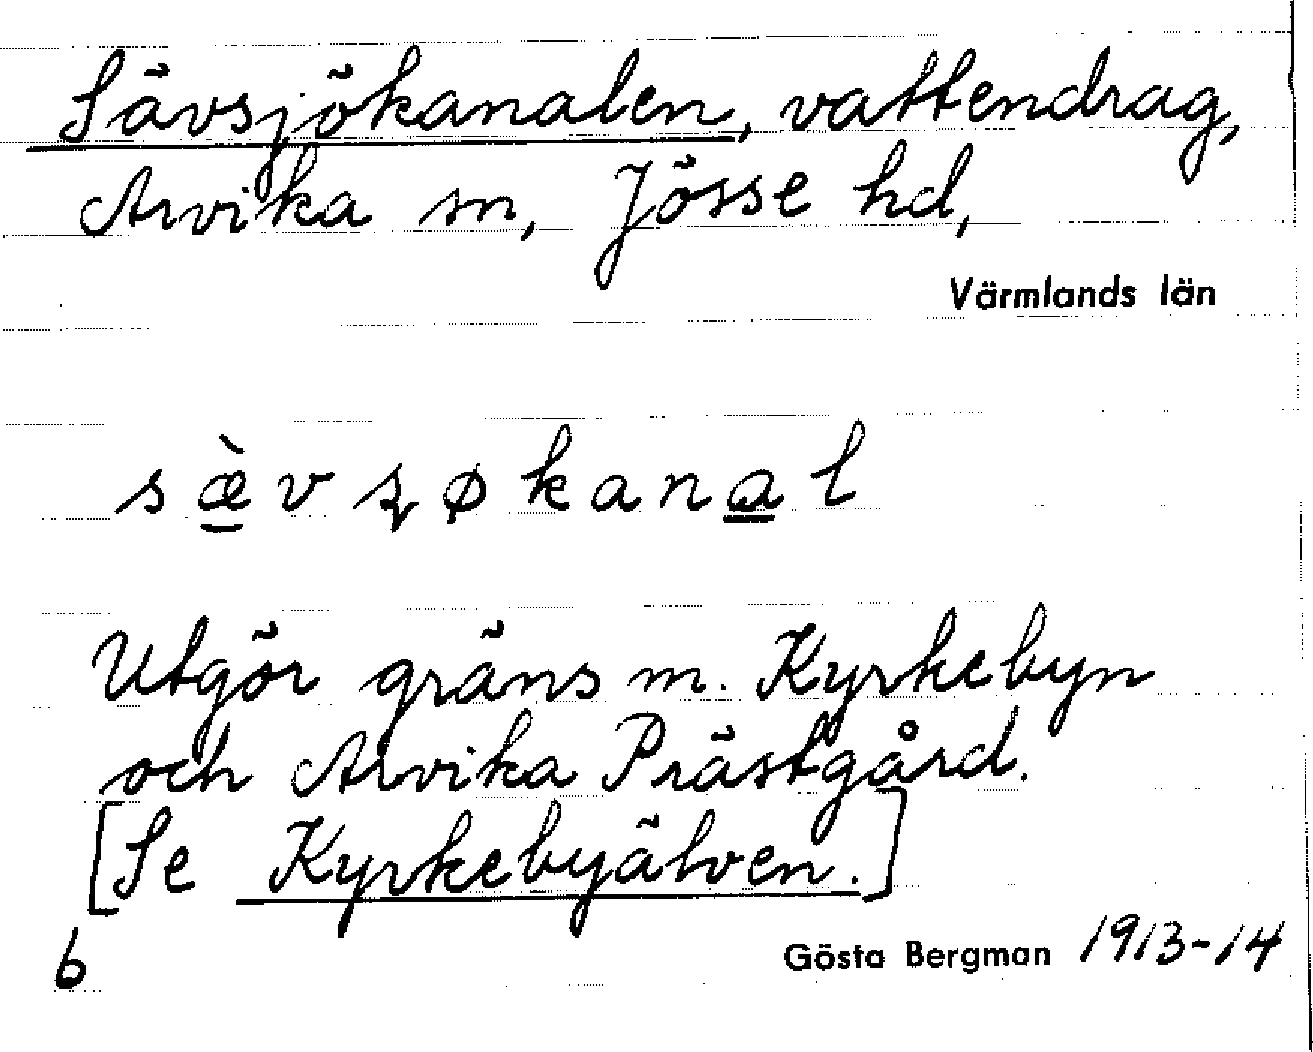 Sävsjökanalen, vattendrag,
Arvika sn, Jösse hd,
Värmlands län
s æ̠̀ v ʂ ø k a n a̠ l
Utgör gräns m. Kyrkebyn
och Arvika Prästgård.
[Se Kyrkebyälven.]
6
Gösta Bergman 1913-14